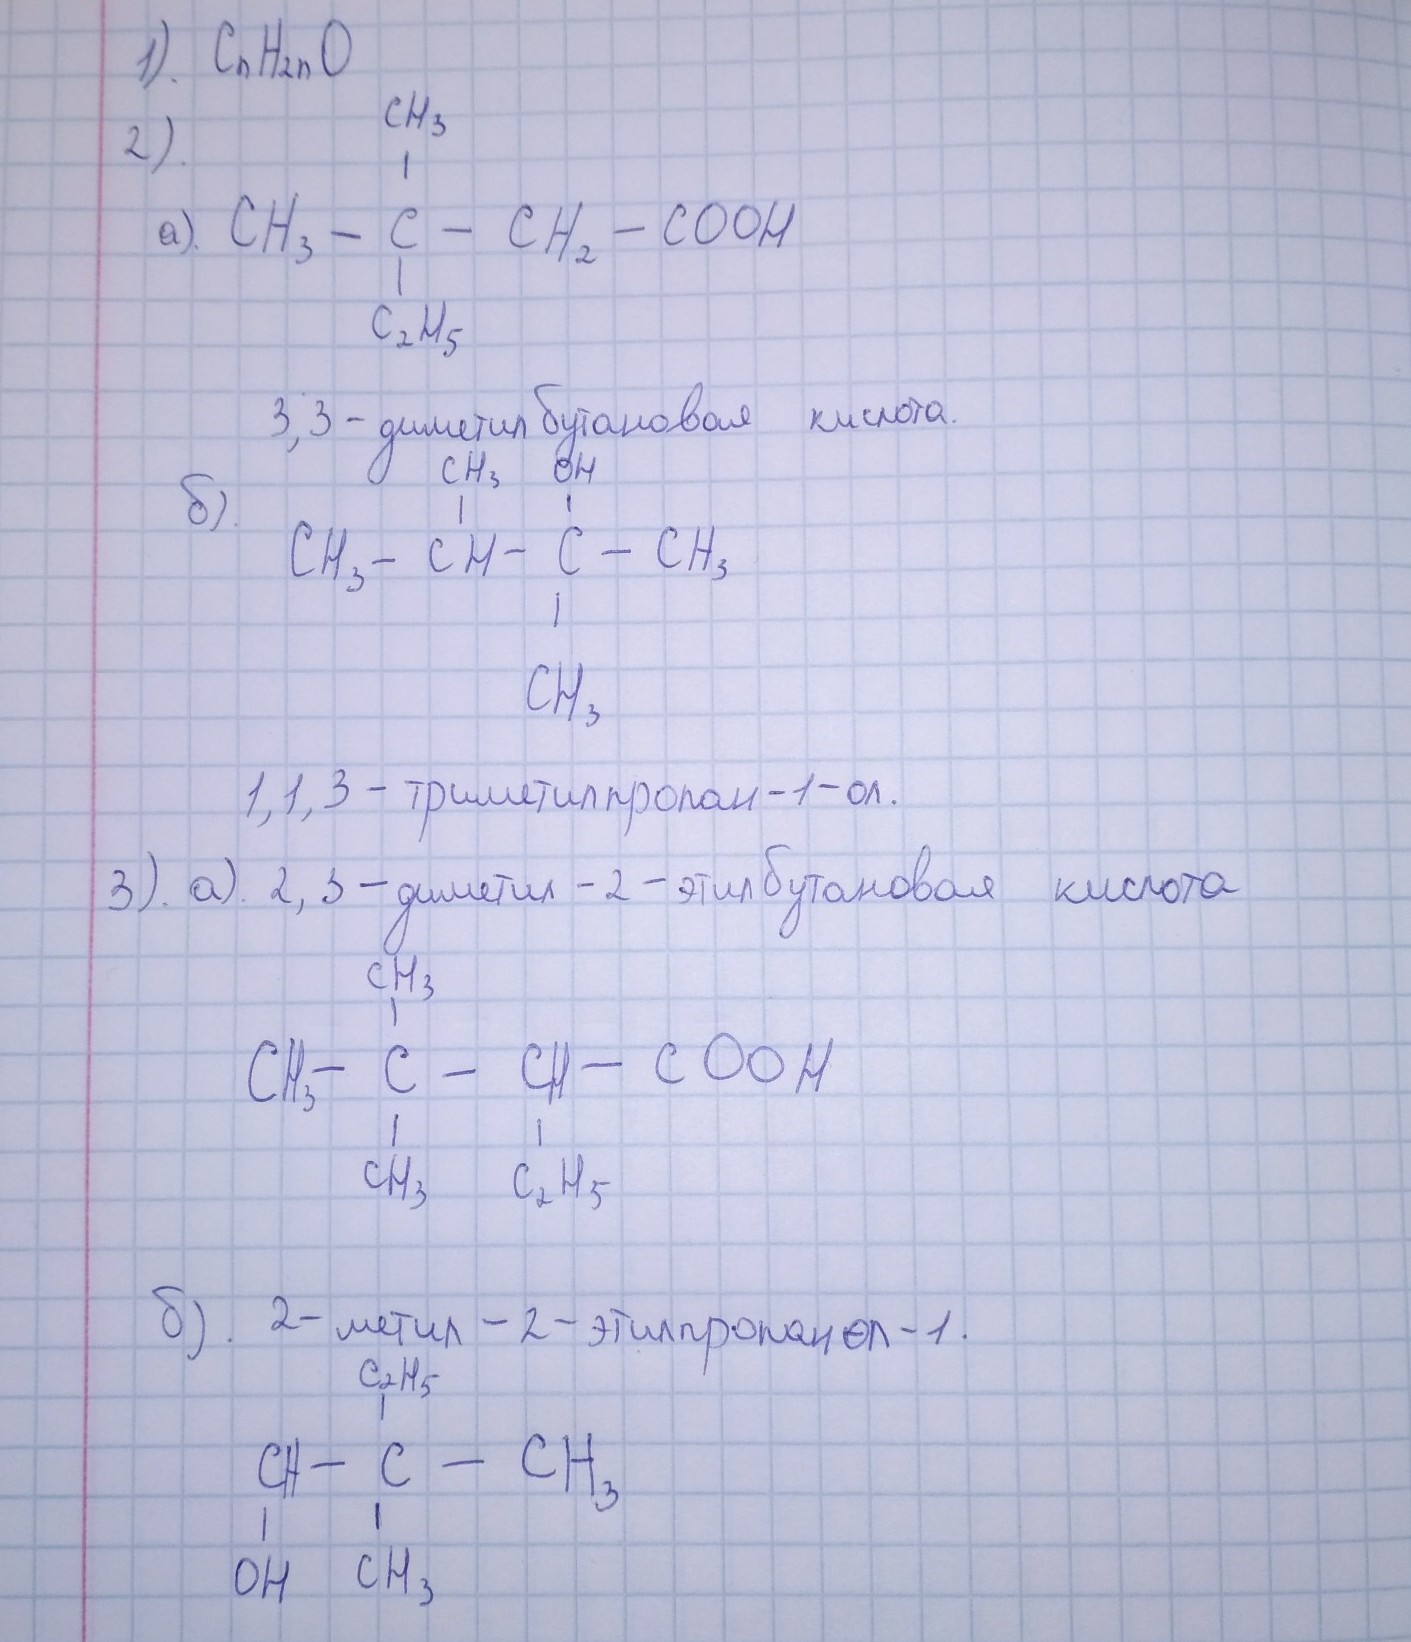 1). CnH2nO
2).
CH3
|
а). CH3 – C – CH2 – COOH
|
C2H5
3,3 – диметилбутановая кислота.
б).
CH3 OH
| |
CH3 – CH – C – CH3
|
CH3
1,1,3 – триметилпропан – 1 – ол.
3). а). 2,3 – диметил – 2 – этилбутановая кислота
CH3
|
CH3 – C – CH – COOH
| |
CH3 C2H5
б). 2 – метил – 2 – этилпропанол – 1.
C2H5
|
CH – C – CH3
| |
OH CH3